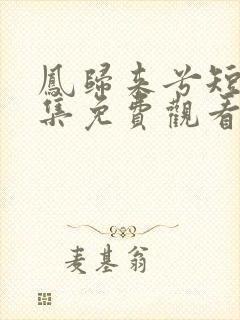 鳳歸來兮短
集免費觀看
麦基翁